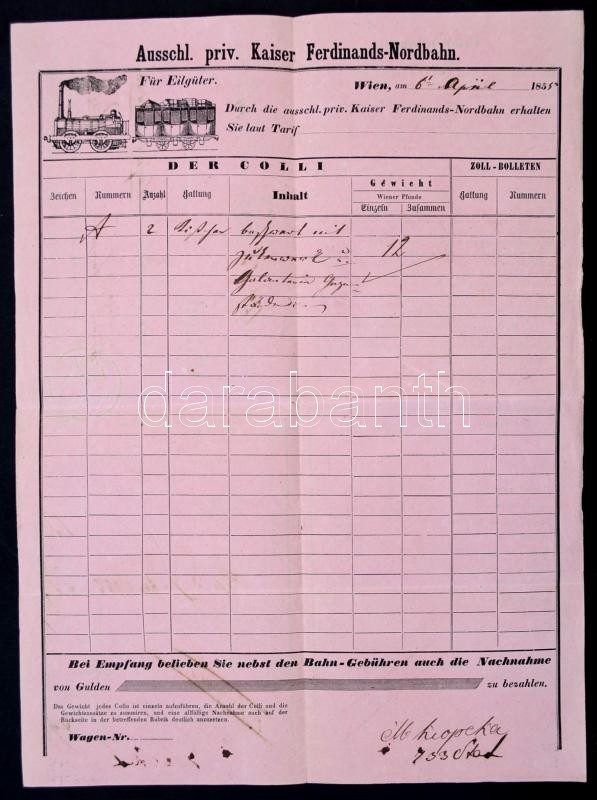 Ausschl. priv. Kaiser Ferdinands-Nordbahn.
Für Eilgüter.
Wien, am 6t April 1855
Durch die ausschl. priv. Kaiser Ferdinands-Nordbahn erhalten
Sie laut Tarif
DER COLLI
ZOLL-BOLLETEN
Zeichen
Nummern
Anzahl
Gattung
Inhalt
Gewicht
Wiener Pfunde
Einzeln
Zusammen
Gattung
Nummern
A 2 mit
12
darabanth
Bei Empfang belieben Sie nebst den Bahn-Gebühren auch die Nachnahme
von Gulden zu bezahlen.
Das Gewicht jedes Collo ist einzeln aufzuführen, die Anzahl der Colli und die
Gewichtsansätze zu summiren, und eine allfällige Nachnahme auch auf der
Rückseite in der betreffenden Rubrik deutlich anzusetzen.
Wagen-Nr.